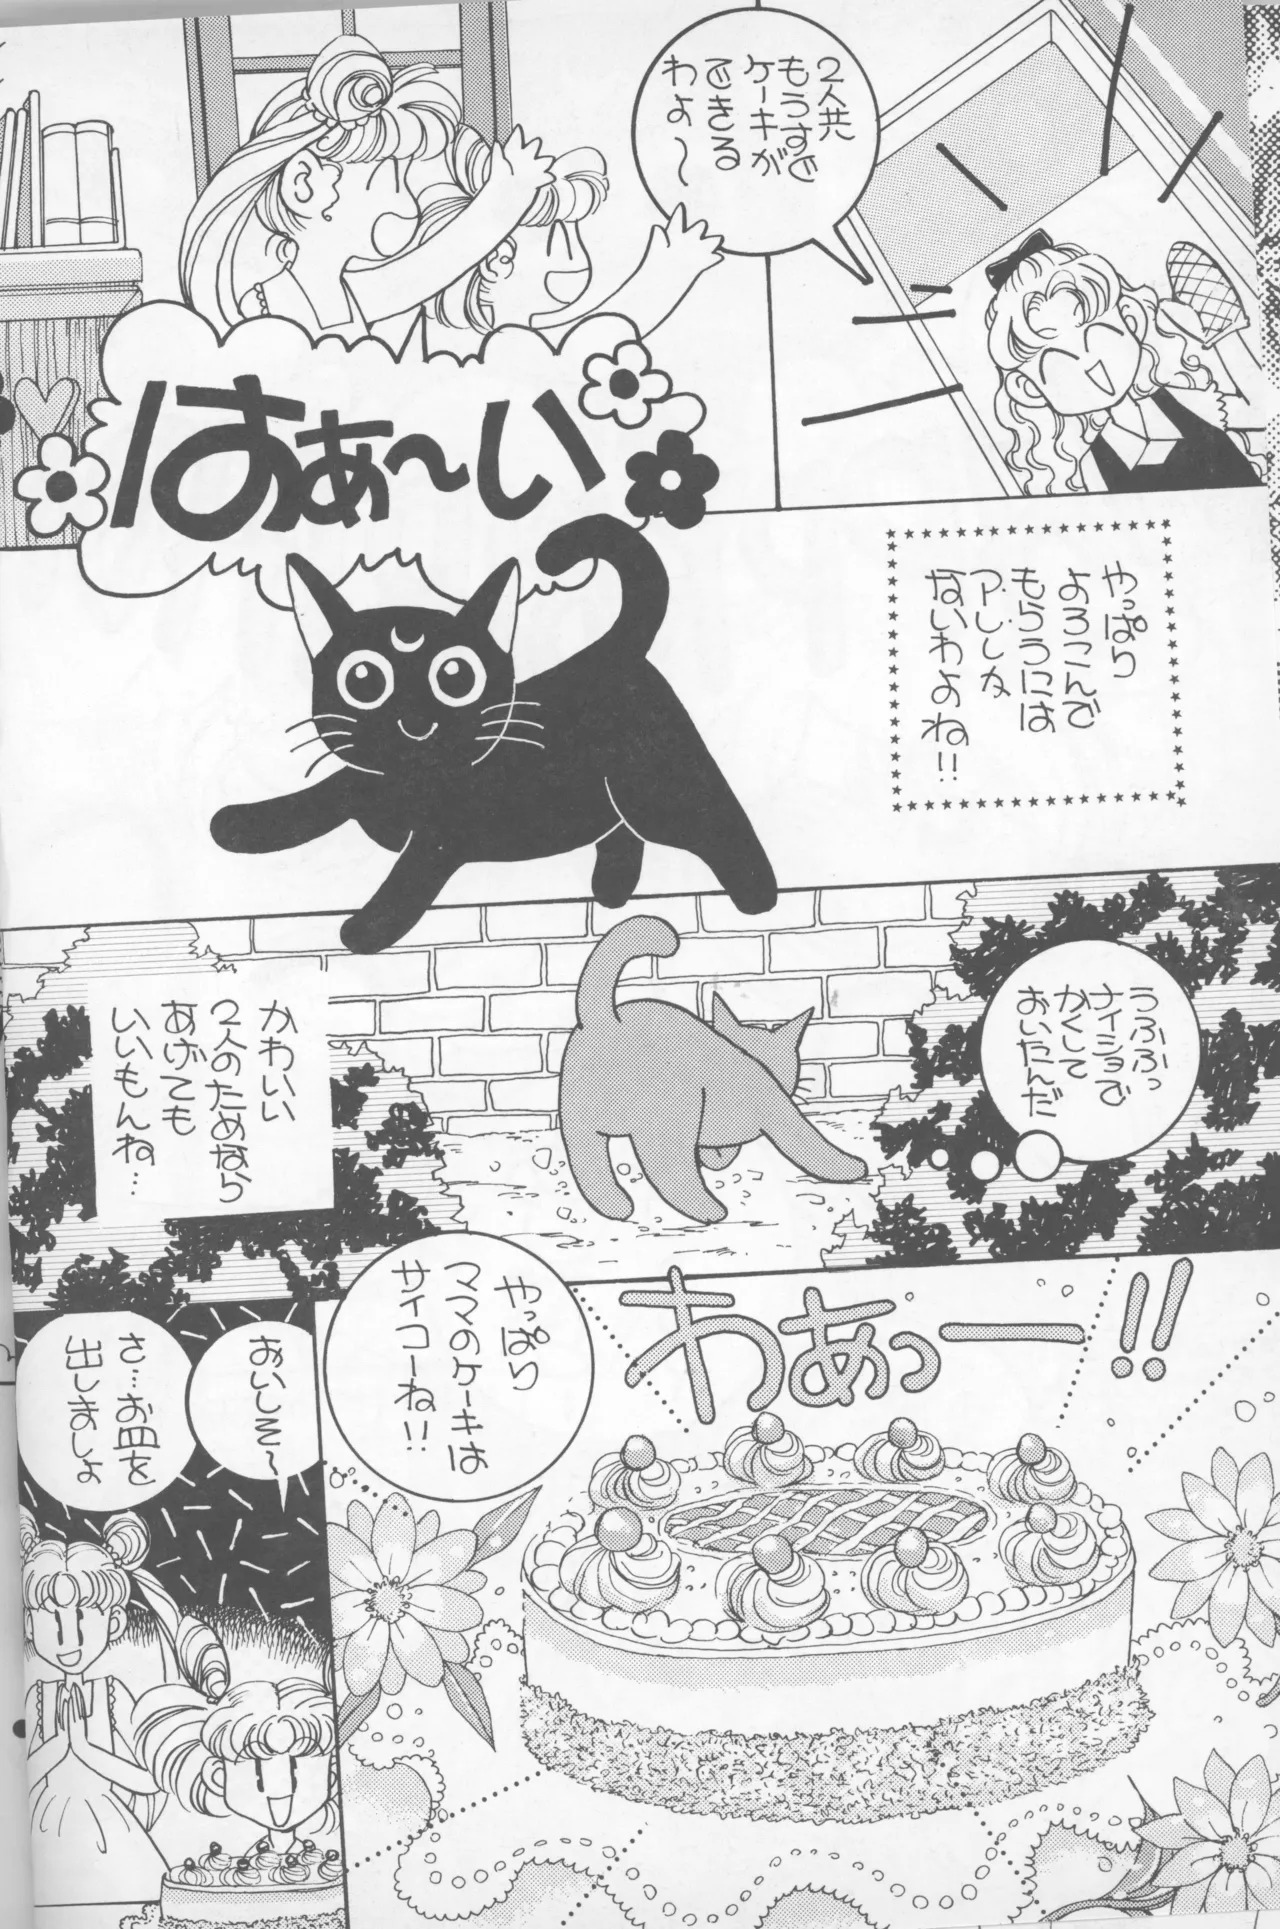 ２人共
もうすぐ
ケーキが
できる
わよ〜
はぁ〜い
やっぱり
よろこんで
もらうには
アレしか
ないわよね!!
うふふっ
ナイショで
かくして
おいたんだ
かわいい
２人のためなら
あげても
いいもんね…
わあっー!!
やっぱり
ママのケーキは
サイコーね!!
おいしそ〜
さ…お皿を
出しましょ